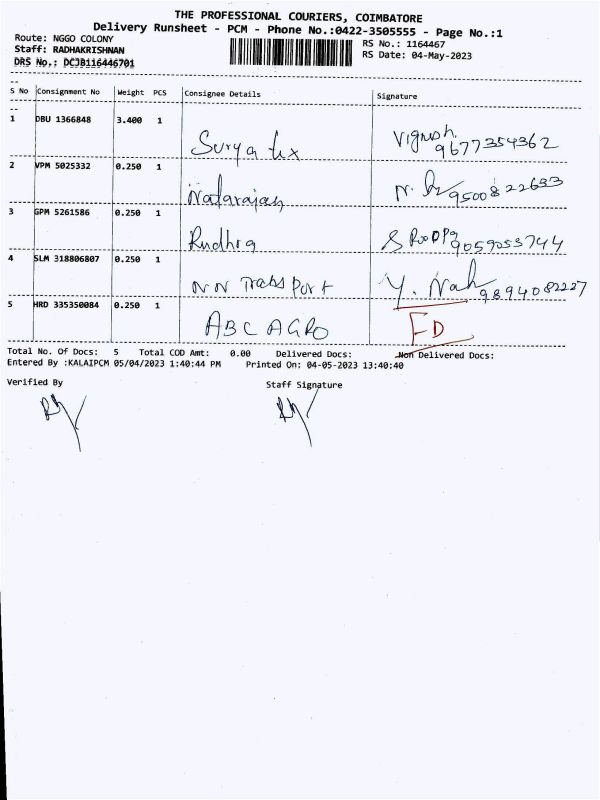 THE PROFESSIONAL COURIERS, COIMBATORE
Delivery Runsheet - PCM - Phone No.:0422-3505555 - Page No.:1
Route: NGGO COLONY
RS No.: 1164467
Staff: RADHAKRISHNAN
RS Date: 04-May-2023
DRS No.: DCJB116446701
S No Consignment No Weight PCS Consignee Details Signature
1 DBU 1366848 3.400 1 Surya tex Vignesh 9677354362
2 VPM 5025332 0.250 1 Natarajan N. 9500822633
3 GPM 5261586 0.250 1 Rudhra 9059053744
4 SLM 318806807 0.250 1 NN Transport Y. 9894082227
5 HRD 335350084 0.250 1 ABC AGRO FD
Total No. Of Docs: 5 Total COD Amt: 0.00 Delivered Docs: Non Delivered Docs:
Entered By :KALAIPCM 05/04/2023 1:40:44 PM Printed On: 04-05-2023 13:40:40
Verified By Staff Signature